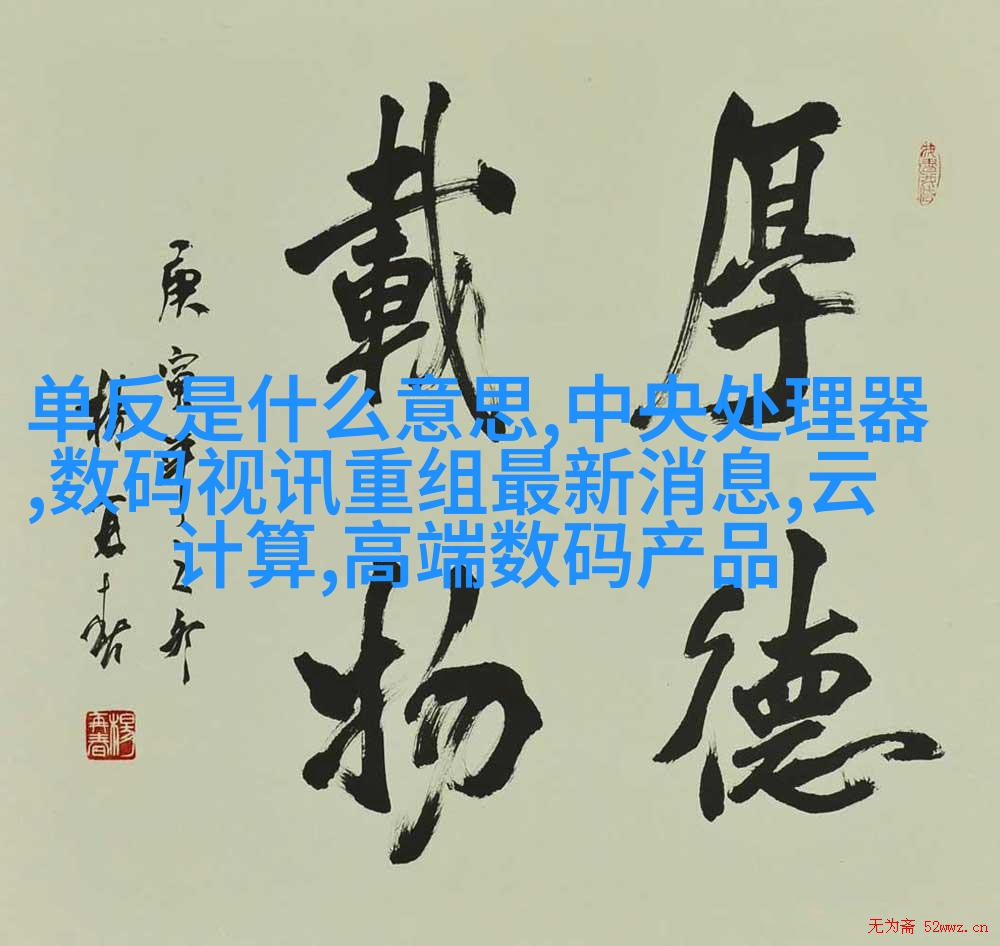 厚德
載物
庚寅年
楊再春
楊再春
单反是什么意思,中央处理器
,数码视讯重组最新消息,云
计算,高端数码产品
无为斋 52wwz.cn